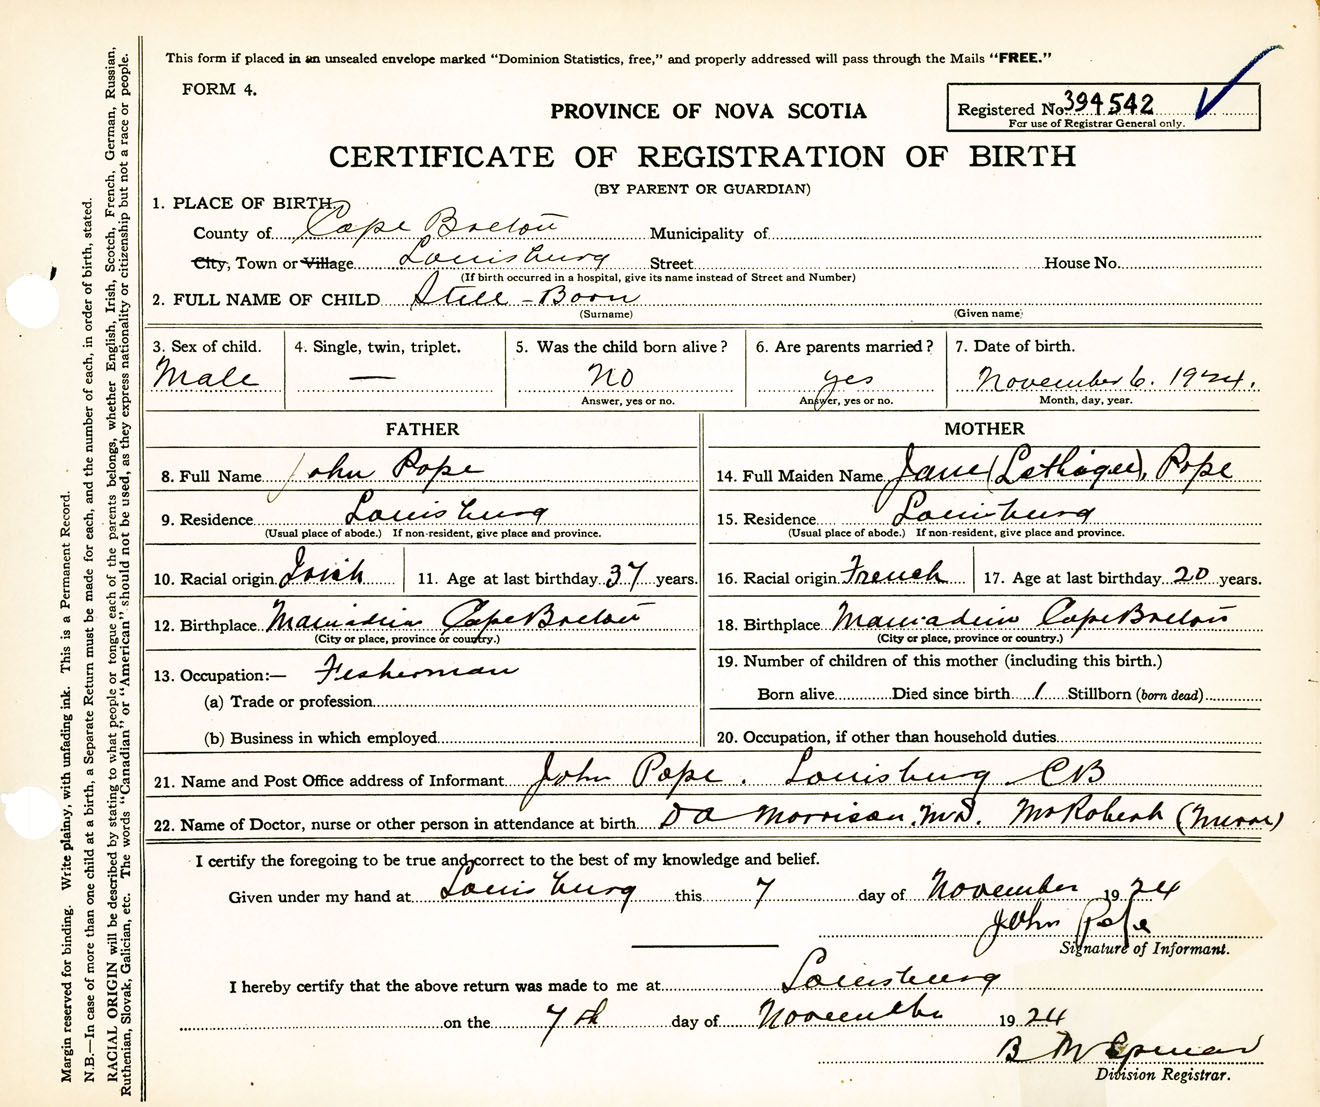 This form if placed in an unsealed envelope marked “Dominion Statistics, free,” and properly addressed will pass through the Mails “FREE.”
FORM 4.
PROVINCE OF NOVA SCOTIA
Registered No. 394542
For use of Registrar General only.
CERTIFICATE OF REGISTRATION OF BIRTH
(BY PARENT OR GUARDIAN)
1. PLACE OF BIRTH.
County of Cape Breton Municipality of
City, Town or Village Louisburg Street House No.
(If birth occurred in a hospital, give its name instead of Street and Number)
2. FULL NAME OF CHILD Still-Born
(Surname) (Given name)
3. Sex of child. 4. Single, twin, triplet. 5. Was the child born alive? 6. Are parents married? 7. Date of birth.
Male — No yes November 6. 1924.
Answer, yes or no. Answer, yes or no. Month, day, year.
FATHER MOTHER
8. Full Name John Pope 14. Full Maiden Name Jane ( ), Pope
9. Residence Louisburg 15. Residence Louisburg
(Usual place of abode.) If non-resident, give place and province. (Usual place of abode.) If non-resident, give place and province.
10. Racial origin Irish 11. Age at last birthday 37 years. 16. Racial origin French 17. Age at last birthday 20 years.
12. Birthplace Mainadieu Cape Breton 18. Birthplace Mainadieu Cape Breton
(City or place, province or country.) (City or place, province or country.)
13. Occupation:— Fisherman 19. Number of children of this mother (including this birth.)
(a) Trade or profession Born alive Died since birth 1 Stillborn (born dead)
(b) Business in which employed 20. Occupation, if other than household duties
21. Name and Post Office address of Informant John Pope. Louisburg CB
22. Name of Doctor, nurse or other person in attendance at birth D A Morrison, M.D. (Nurse)
I certify the foregoing to be true and correct to the best of my knowledge and belief.
Given under my hand at Louisburg this 7 day of November 1924
John Pope
Signature of Informant.
I hereby certify that the above return was made to me at Louisburg
on the 7th day of November 1924
B
Division Registrar.
Margin reserved for binding. Write plainly, with unfading ink. This is a Permanent Record.
N.B.—In case of more than one child at a birth, a Separate Return must be made for each, and the number of each, in order of birth, stated.
RACIAL ORIGIN will be described by stating to what people or tongue each of the parents belongs, whether English, Irish, Scotch, French, German, Russian,
Ruthenian, Slovak, Galician, etc. The words “Canadian” or “American” should not be used, as they express nationality or citizenship but not a race or people.